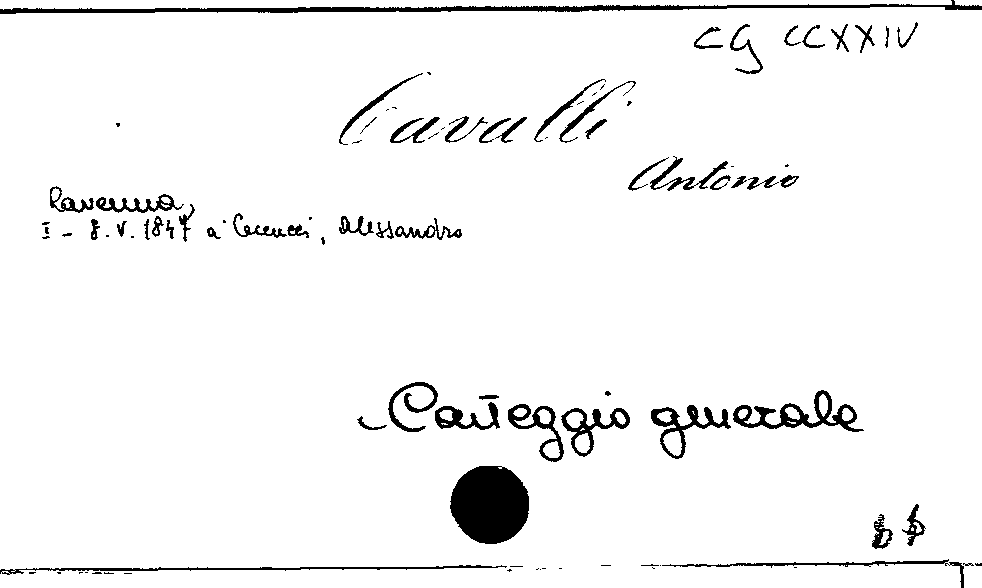 CG CCXXIV
Cavalli
Antonio
Ravenna,
I - 8. V. 1847 a Cecucci, Alessandro
Carteggio generale